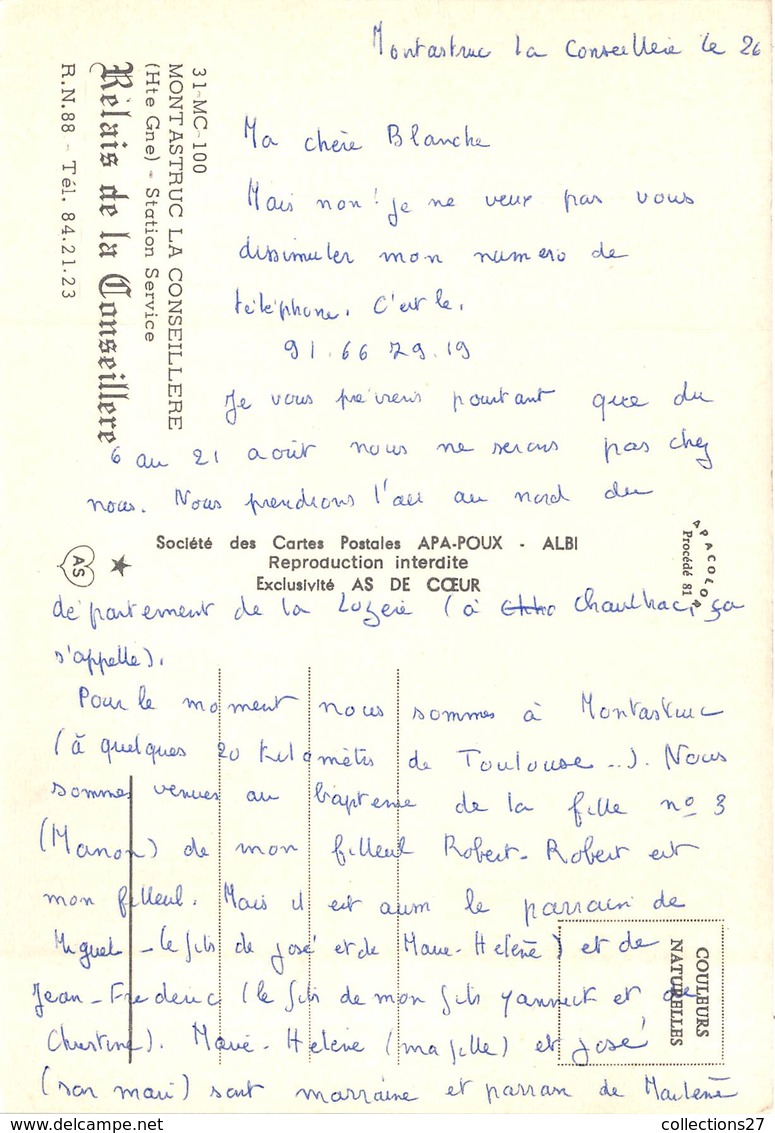 Montastruc la Conseillère le 26
31-MC-100
MONTASTRUC LA CONSEILLERE
(Hte Gne) - Station Service
Relais de la Conseillere
R.N.88 - Tél. 84.21.23
Ma chère Blanche
Mais non! je ne veux pas vous
dissimuler mon numero de
téléphone. C'est le.
91.66 79.19
Je vous préviens pourtant que du
6 au 21 août nous ne serons pas chez
nous. Nous prendrons l'air au nord du
Société des Cartes Postales APA-POUX - ALBI
Reproduction interdite
Exclusivité AS DE CŒUR
AS
APACOLOR
Procédé 81
département de la Lozère (à Chaulhac, ça
s'appelle).
Pour le moment nous sommes à Montastruc
(à quelques 20 kilomètres de Toulouse...). Nous
sommes venues au baptême de la fille nº 3
(Manon) de mon filleul Robert. Robert est
mon filleul. Mais il est aussi le parrain de
Miguel - le fils de José et de Marie-Helène) et de
Jean-Frederic (le fils de mon fils Yannick et de
Christine). Marie-Helène (ma fille) et José
(son mari) sont marraine et parrain de Marlène
COULEURS
NATURELLES
collections27